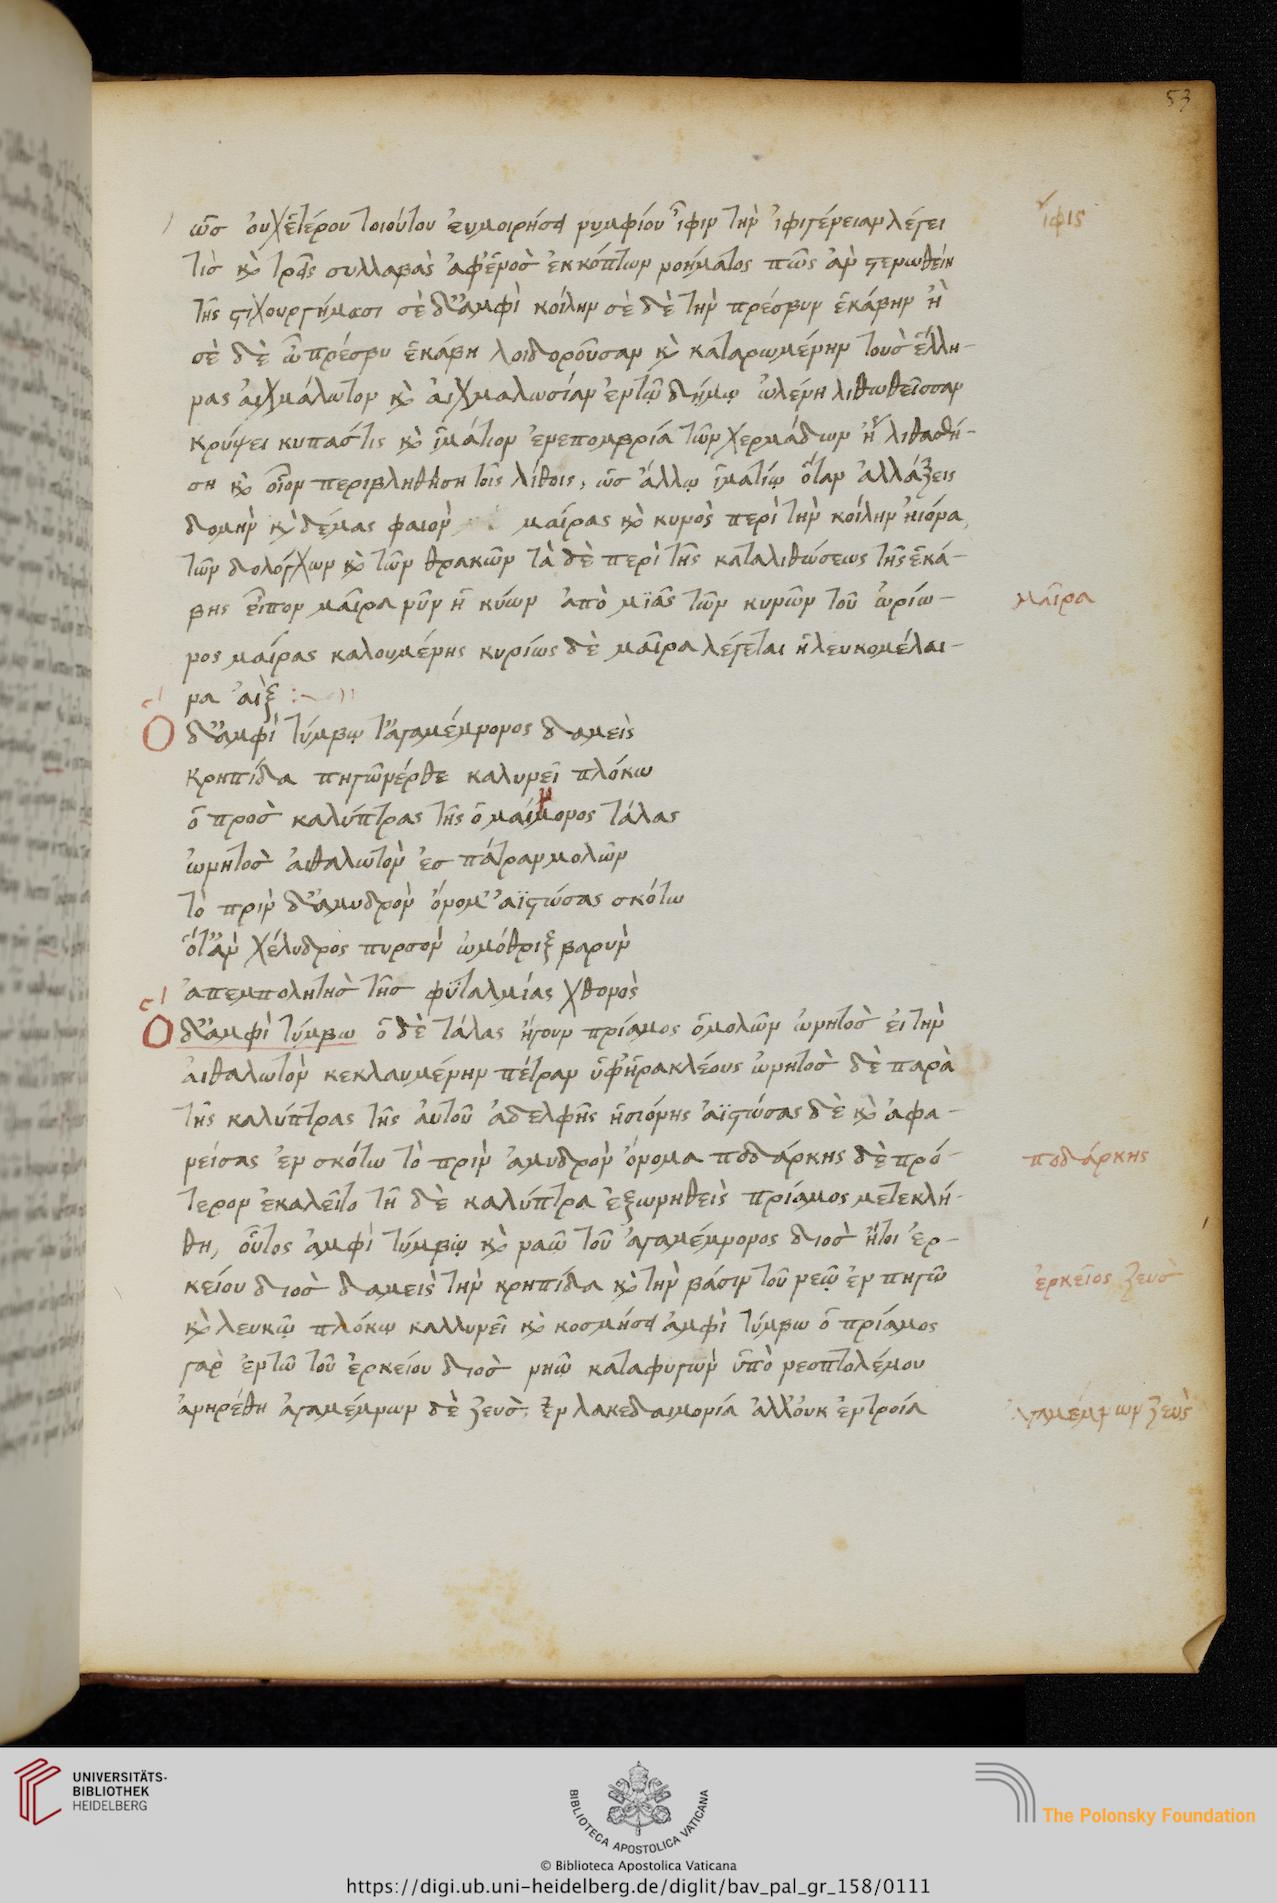 53
ὡσ οὐχ ἑτέρου τοιούτου εὐμοιρήσει νυμφίου ἶφιν τὴν ἰφιγένειαν λέγει
ἶφις
τὶσ κ τρεῖς συλλαβὰς ἀφ' ἑνὸσ ἐκκόπτων νοήματος πῶς ἂν στερωθείη
τῆς στιχουργήμασι σὲ δ' ἀμφὶ κοίλην σὲ δὲ τὴν πρέσβυν ἑκάβην ἢ
σὲ δὲ ὦ πρέσβυ ἑκάβη λοιδοροῦσαν κ καταρωμένην τοὺσ ἕλλη-
νας αἰχμάλωτον κ αἰχμαλωσίαν ἐν τῷ δήμῳ ὠλένη λιθωθεῖσσαν
κρύψει κυπαστὶς κ ἱμάτιον ἐν ἐπομβρία τῶν χερμάδων ἢ λιθασθή-
ση κ οἷον περιβληθήση τοῖς λίθοις, ὡσ ἄλλῳ ἱματίῳ ὅταν ἀλλάξεις
δομὴν κ δέμας φαιὸν μαίρας κ κυνὸς περὶ τὴν κοίλην ἠιόνα
τῶν δολόγχων κ τῶν θρακῶν τὰ δὲ περὶ τῆς καταλιθώσεως τῆς ἑκά-
βης εἶπον μαῖρα νῦν ἡ κύων ἀπὸ μϊᾶς τῶν κυνῶν τοῦ ὠρίω-
μαῖρα
νος μαίρας καλουμένης κυρίως δὲ μαῖρα λέγεται ἡ λευκομέλαι-
να αἲξ :~
Ὁ δ' ἀμφὶ τύμβῳ τ' ἀγαμέμνονος δαμεὶς
κρηπίδα πηγῶ νέρθε καλυνεῖ πλόκω
ὁ πρὸσ καλύπτρας τῆς ὁμαίμονος τάλας
ὠνητὸσ αἰθαλωτὸν ἐσ πάτραν μολῶν
τὸ πρὶν δ' ἀμυδρὸν ὄνομ' ἀϊστώσας σκότω
ὅταν χέλυδρος πυρσὸν ὠμόθριξ βαρὺν
ἀπεμπολητῆσ τῆσ φυταλμίας χθονὸς
Ὁ δ' ἀμφὶ τύμβω ὁ δὲ τάλας ἤγουν πρίαμος ὁ μολῶν ὠνητὸσ εἰ τὴν
αἰθαλωτὸν κεκλαυμένην πέτραν ὑφ' ἡρακλέους ὠνητὸσ δὲ παρὰ
τῆς καλύπτρας τῆς αὐτοῦ ἀδελφῆς ἡσιόνης ἀϊστώσας δὲ κ ἀφα-
νείσας ἐν σκότω τὸ πρὶν ἀμυδρὸν ὄνομα ποδάρκης δὲ πρό-
ποδάρκης
τερον ἐκαλεῖτο τῆ δὲ καλύπτρα ἐξωνηθεὶς πρίαμος μετεκλή-
θη, οὗτος ἀμφὶ τύμβῳ κ ναῶ τοῦ ἀγαμέμνονος διοσ ἤτοι ἑρ-
κείου διοσ δαμεὶς τὴν κρηπίδα κ τὴν βάσιν τοῦ νεῶ ἐν πηγῶ
ἑρκεῖος ζευσ
κ λευκῷ πλόκω καλλυνεῖ κ κοσμήσει ἀμφὶ τύμβω ὁ πρίαμος
γαρ ἐν τῶ τοῦ ἑρκείου διοσ νηῶ καταφυγὼν ὑπὸ νεοπτολέμου
ἀνηρέθη ἀγαμέμνων δὲ ζευσ ἐν λακεδαιμονία ἀλλ' οὐκ ἐν τροία
ἀγαμέμνων ζεὺς
UNIVERSITÄTS-
BIBLIOTHEK
HEIDELBERG
BIBLIOTECA APOSTOLICA VATICANA
The Polonsky Foundation
© Biblioteca Apostolica Vaticana
https://digi.ub.uni-heidelberg.de/diglit/bav_pal_gr_158/0111